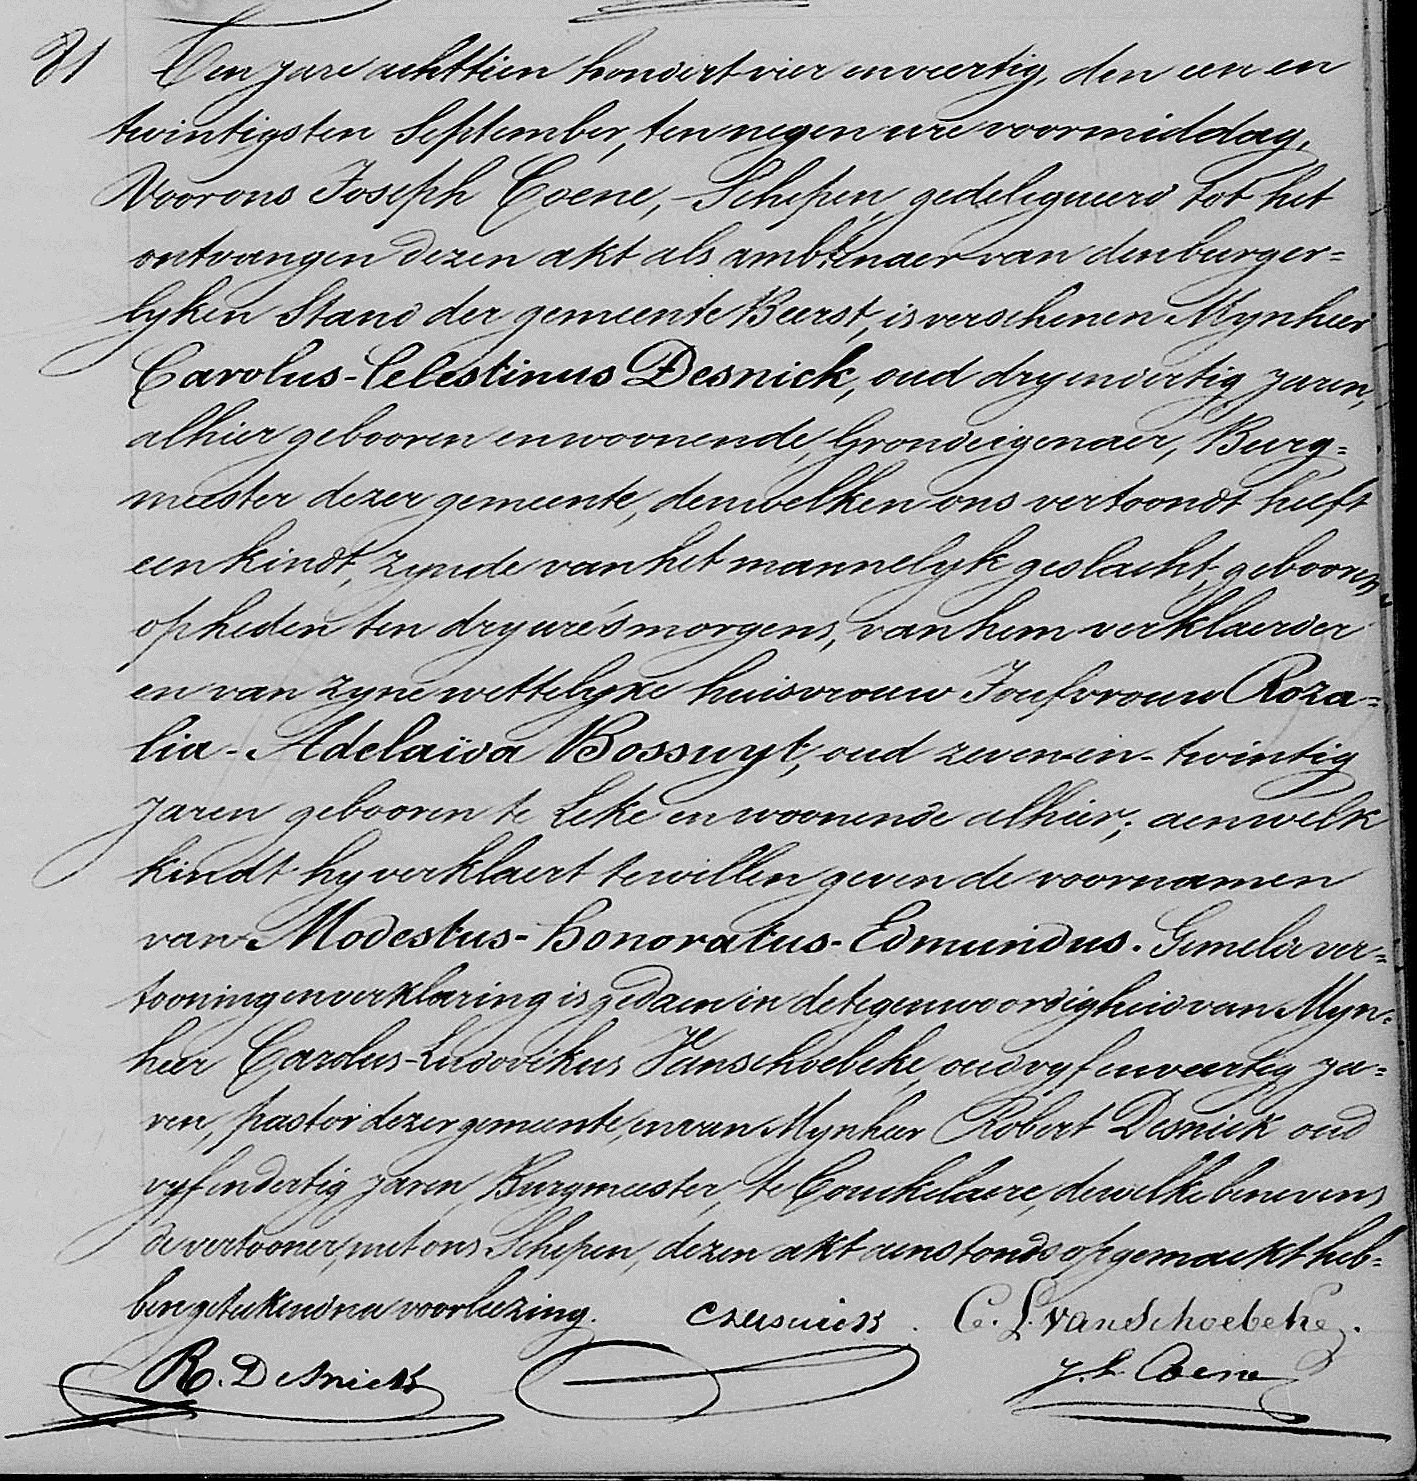 81 Den jare achttien hondert vier en veertig, den een en
twintigsten September, ten negen ure voormiddag,
Voor ons Joseph Coene, - Schepen, gedelegueerd tot het
ontvangen dezen akt als ambtenaer van den burger=
lyken Stand der gemeente Beerst, is verschenen Mynheer
Carolus-Celestinus Desnick, oud dry en dertig jaren,
alhier gebooren en woonende, Grondeigenaer, Burg=
meester dezer gemeente, denwelken ons vertoondt heeft
een kindt, zynde van het mannelyk geslacht, gebooren
op heden ten dry ure 's morgens, van hem verklaerder
en van zyne wettelyke huisvrouw Joufvrouw Roza=
lia-Adelaïda Bossuyt, oud zeven-en-twintig
jaren gebooren te Leke en woonende alhier; aen welk
kindt hy verklaert te willen geven de voornamen
van Modestus-Honoratus-Edmundus. Gemelde ver=
tooning en verklaring is gedaen in de tegenwoordigheid van Myn=
heer Carolus-Ludovikus Vanschoebeke, oud vyf en veertig ja=
ren, pastor dezer gemeente, en van Mynheer Robert Desnick oud
vyf en dertig jaren, Burgmeester, te Couckelaere, dewelke benevens
de vertooner, met ons Schepen, dezen akt aenstonds opgemaekt heb=
ben geteekend na voorleezing. C. Desnick. C. L. vanschoebeke.
R. Desnick J. L. Coene